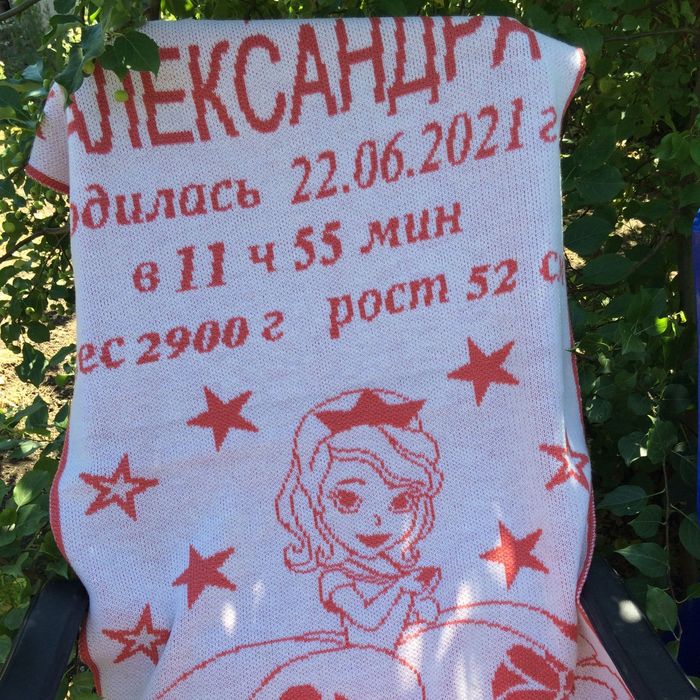 АЛЕКСАНДРА
одилась 22.06.2021 г
в 11 ч 55 мин
ес 2900 г рост 52 с